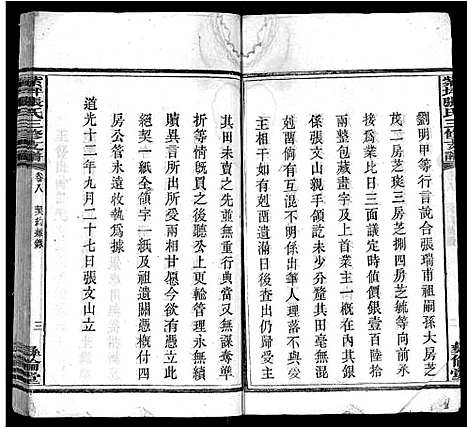 劉明甲等行言說合張瑞甫祖嗣孫大房芝
茂二房芝玭三房芝捌四房芝毓等向前承
接為業比日三面議定時值銀壹百陸拾
整包藏畫字及上首業主一概在內其銀
係張文山親手領訖未少分釐其田無混
不明倘有互混不明係出筆人理落不與受
主相干如有剋酒遺漏日后查出仍歸受主
其田未賣之先並無重行典當又無謀奪準
等情既買之後聽公上更輪管理永無續
贖異言所出所受兩相甘愿今欲有憑立
絕契一紙全領字一紙及祖遺關憑概付四
房公管永遠收執為據
道光十三年九月二十七日張文山立
張氏三修支譜
卷八
契約
三